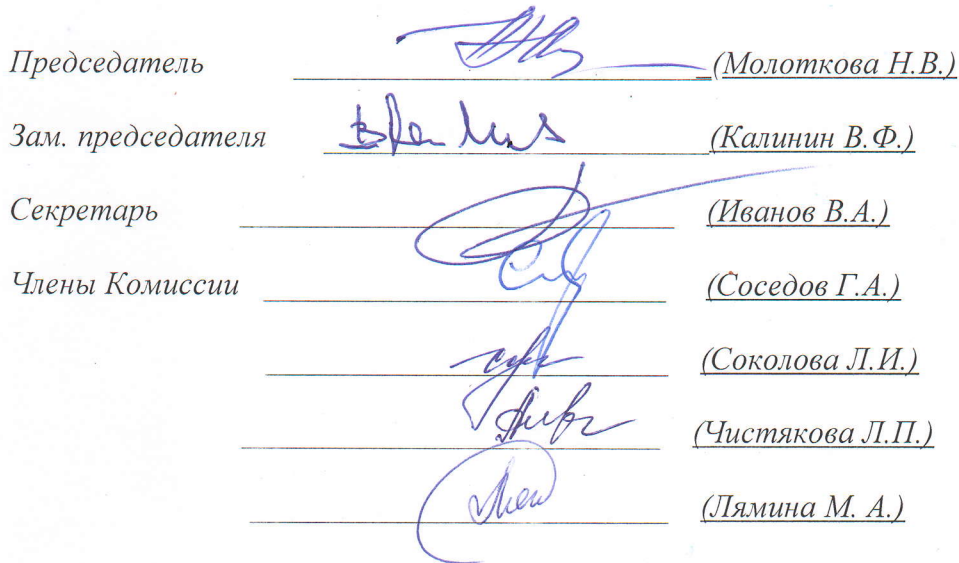 Председатель (Молоткова Н.В.)
Зам. председателя (Калинин В.Ф.)
Секретарь (Иванов В.А.)
Члены Комиссии (Соседов Г.А.)
(Соколова Л.И.)
(Чистякова Л.П.)
(Лямина М. А.)